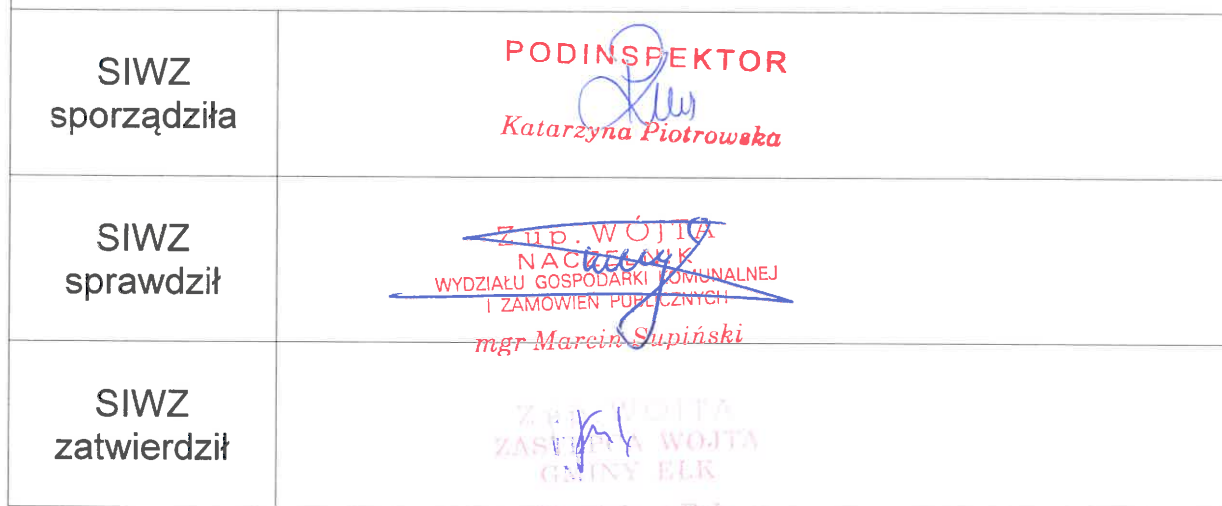 SIWZ
sporządziła
PODINSPEKTOR
Katarzyna Piotrowska
SIWZ
sprawdził
Z up. WÓJTA
NACZELNIK
WYDZIAŁU GOSPODARKI KOMUNALNEJ
I ZAMÓWIEŃ PUBLICZNYCH
mgr Marcin Supiński
SIWZ
zatwierdził
Z up. WÓJTA
ZASTĘPCA WÓJTA
GMINY EŁK